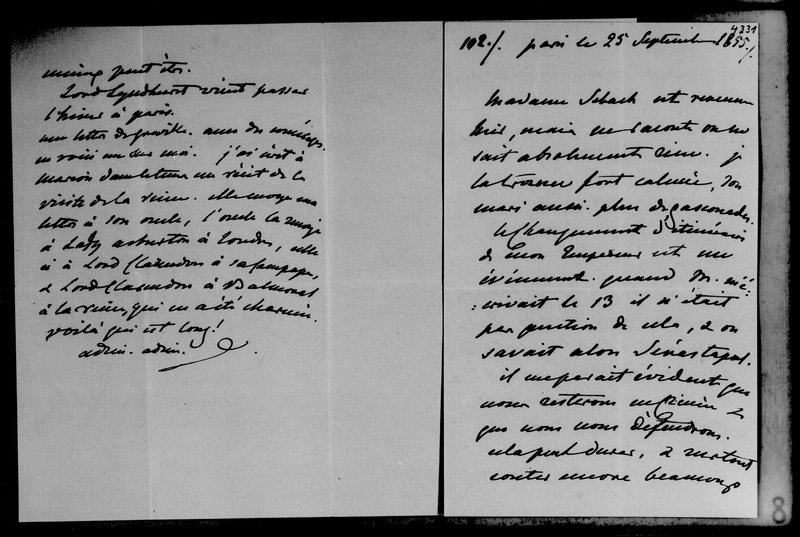 mieux peut être.
Lord Lyndhurst vient passer
l'hiver à paris.
une lettre de greville. avec des
en voici une de moi. j'ai écrit à
marion dans le tems un récit de la
visite de la reine. elle envoye ma
lettre à son oncle, l'oncle la renvoye
à Lady asburton à Londres, elle
ci à Lord Clarendon à sa campagne,
& Lord Clarendon à Balmoral
à la reine, qui en a été charmée.
voilà qui est long!
adieu. adieu.
4331
102./. paris le 25 Septembre 1855./.
Madame Sebach est revenue
hier, mais ne raconte on ne
sait absolument rien. je
la trouve fort calmée, son
mari aussi. plus de gasconades.
le changement d'itinéraire
de mon Empereur est un
événement. quand M. m'é-
:crivait le 13 il n'était
pas question de cela, & on
savait alors Sévastopol.
il me parait évident que
nous resterons en Crimée &
que nous nous défendrons.
cela peut durer, & surtout
couter encore beaucoup
8